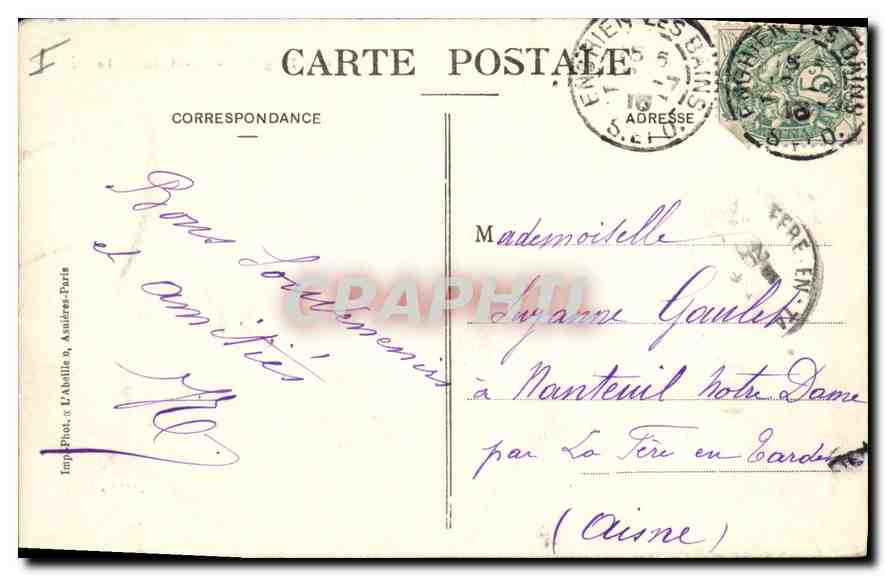 CARTE POSTALE
CORRESPONDANCE
ADRESSE
ENGHIEN LES BAINS
S.ET O.
ENGHIEN LES BAINS
S.ET O.
FERE-EN-
Bons souvenirs
et amitiés
Mademoiselle
Suzanne Gaulet
à Nanteuil Notre Dame
par La Fère en Tardenois
(Aisne)
Imp.-Phot. "L'Abeille", Asnières-Paris
CPAPHIL